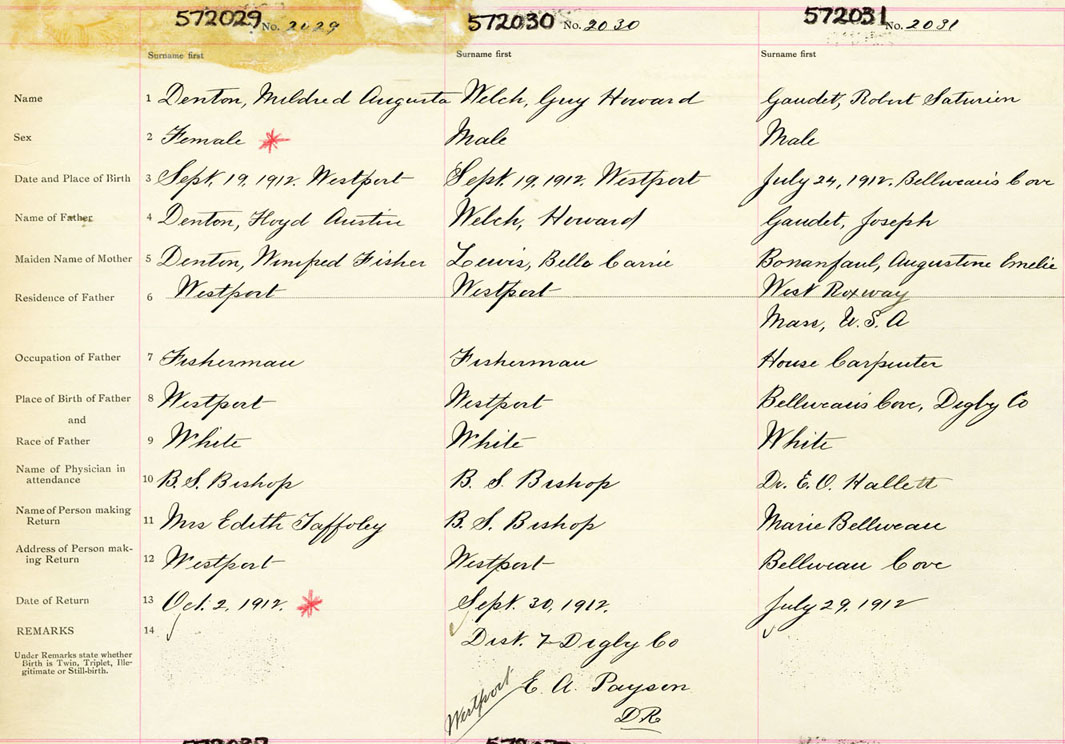 572029 No. 2029 572030 No. 2030 572031 No. 2031
Surname first Surname first Surname first
Name 1 Denton, Mildred Augusta Welch, Guy Howard Gaudet, Robert Saturien
Sex 2 Female * Male Male
Date and Place of Birth 3 Sept. 19, 1912. Westport Sept. 19, 1912. Westport July 24, 1912. Belliveau's Cove
Name of Father 4 Denton, Floyd Austin Welch, Howard Gaudet, Joseph
Maiden Name of Mother 5 Denton, Winifred Fisher Lewis, Bella Carrie Augustine Emelie
Residence of Father 6 Westport Westport West Roxway
Mass, U.S.A
Occupation of Father 7 Fisherman Fisherman House Carpenter
Place of Birth of Father 8 Westport Westport Belliveau's Cove, Digby Co
and
Race of Father 9 White White White
Name of Physician in
attendance 10 B. S. Bishop B. S. Bishop Dr. E. O. Hallett
Name of Person making
Return 11 Mrs Edith Taffoley B. S. Bishop Marie Belliveau
Address of Person mak-
ing Return 12 Westport Westport Belliveau Cove
Date of Return 13 Oct. 2, 1912. * Sept. 30, 1912. July 29, 1912
REMARKS 14
Dist. 7 Digby Co
Under Remarks state whether
Birth is Twin, Triplet, Ille-
gitimate or Still-birth.
Westport E. A. Payson
DR